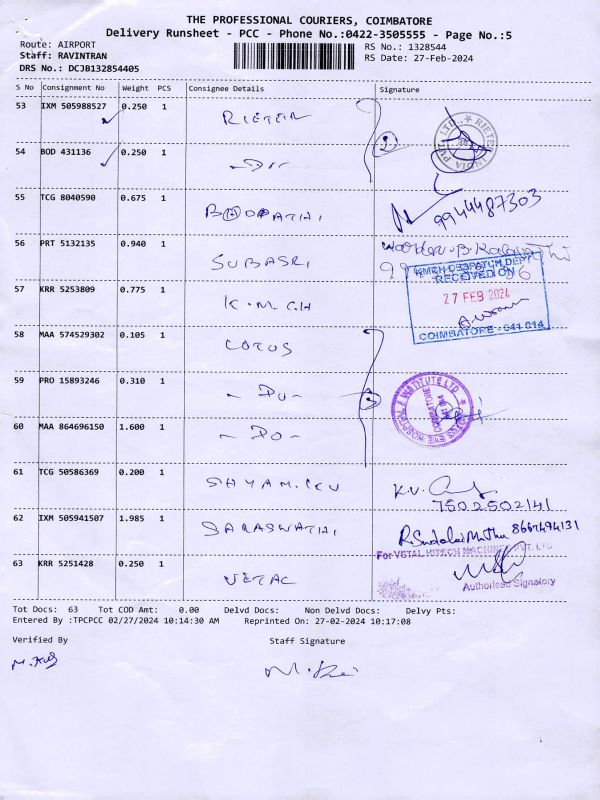 THE PROFESSIONAL COURIERS, COIMBATORE
Delivery Runsheet - PCC - Phone No.:0422-3505555 - Page No.:5
Route: AIRPORT
RS No.: 1328544
Staff: RAVINTRAN
RS Date: 27-Feb-2024
DRS No.: DCJB132854405
S No Consignment No Weight PCS Consignee Details Signature
53 IXM 505988527 0.250 1 RIETER
54 BOD 431136 0.250 1
55 TCG 8040590 0.675 1 BOOPATHI 9944487303
56 PRT 5132135 0.940 1 SUBASRI
57 KRR 5253809 0.775 1 K.M.C.H
KMCH DESPATCH DEPT
RECEIVED ON
27 FEB 2024
COIMBATORE - 641 014
58 MAA 574529302 0.105 1 LOTUS
59 PRO 15893246 0.310 1 - DO -
60 MAA 864696150 1.600 1 - DO -
61 TCG 50586369 0.200 1 SHYAM.KU K.V. 7502502141
62 IXM 505941507 1.985 1 SARASWATHI R.SudalaiMuthu 8667494131
For VETAL HITECH MACHINES PVT. LTD
63 KRR 5251428 0.250 1 VETAL
Authorised Signatory
Tot Docs: 63 Tot COD Amt: 0.00 Delvd Docs: Non Delvd Docs: Delvy Pts:
Entered By :TPCPCC 02/27/2024 10:14:30 AM Reprinted On: 27-02-2024 10:17:08
Verified By Staff Signature